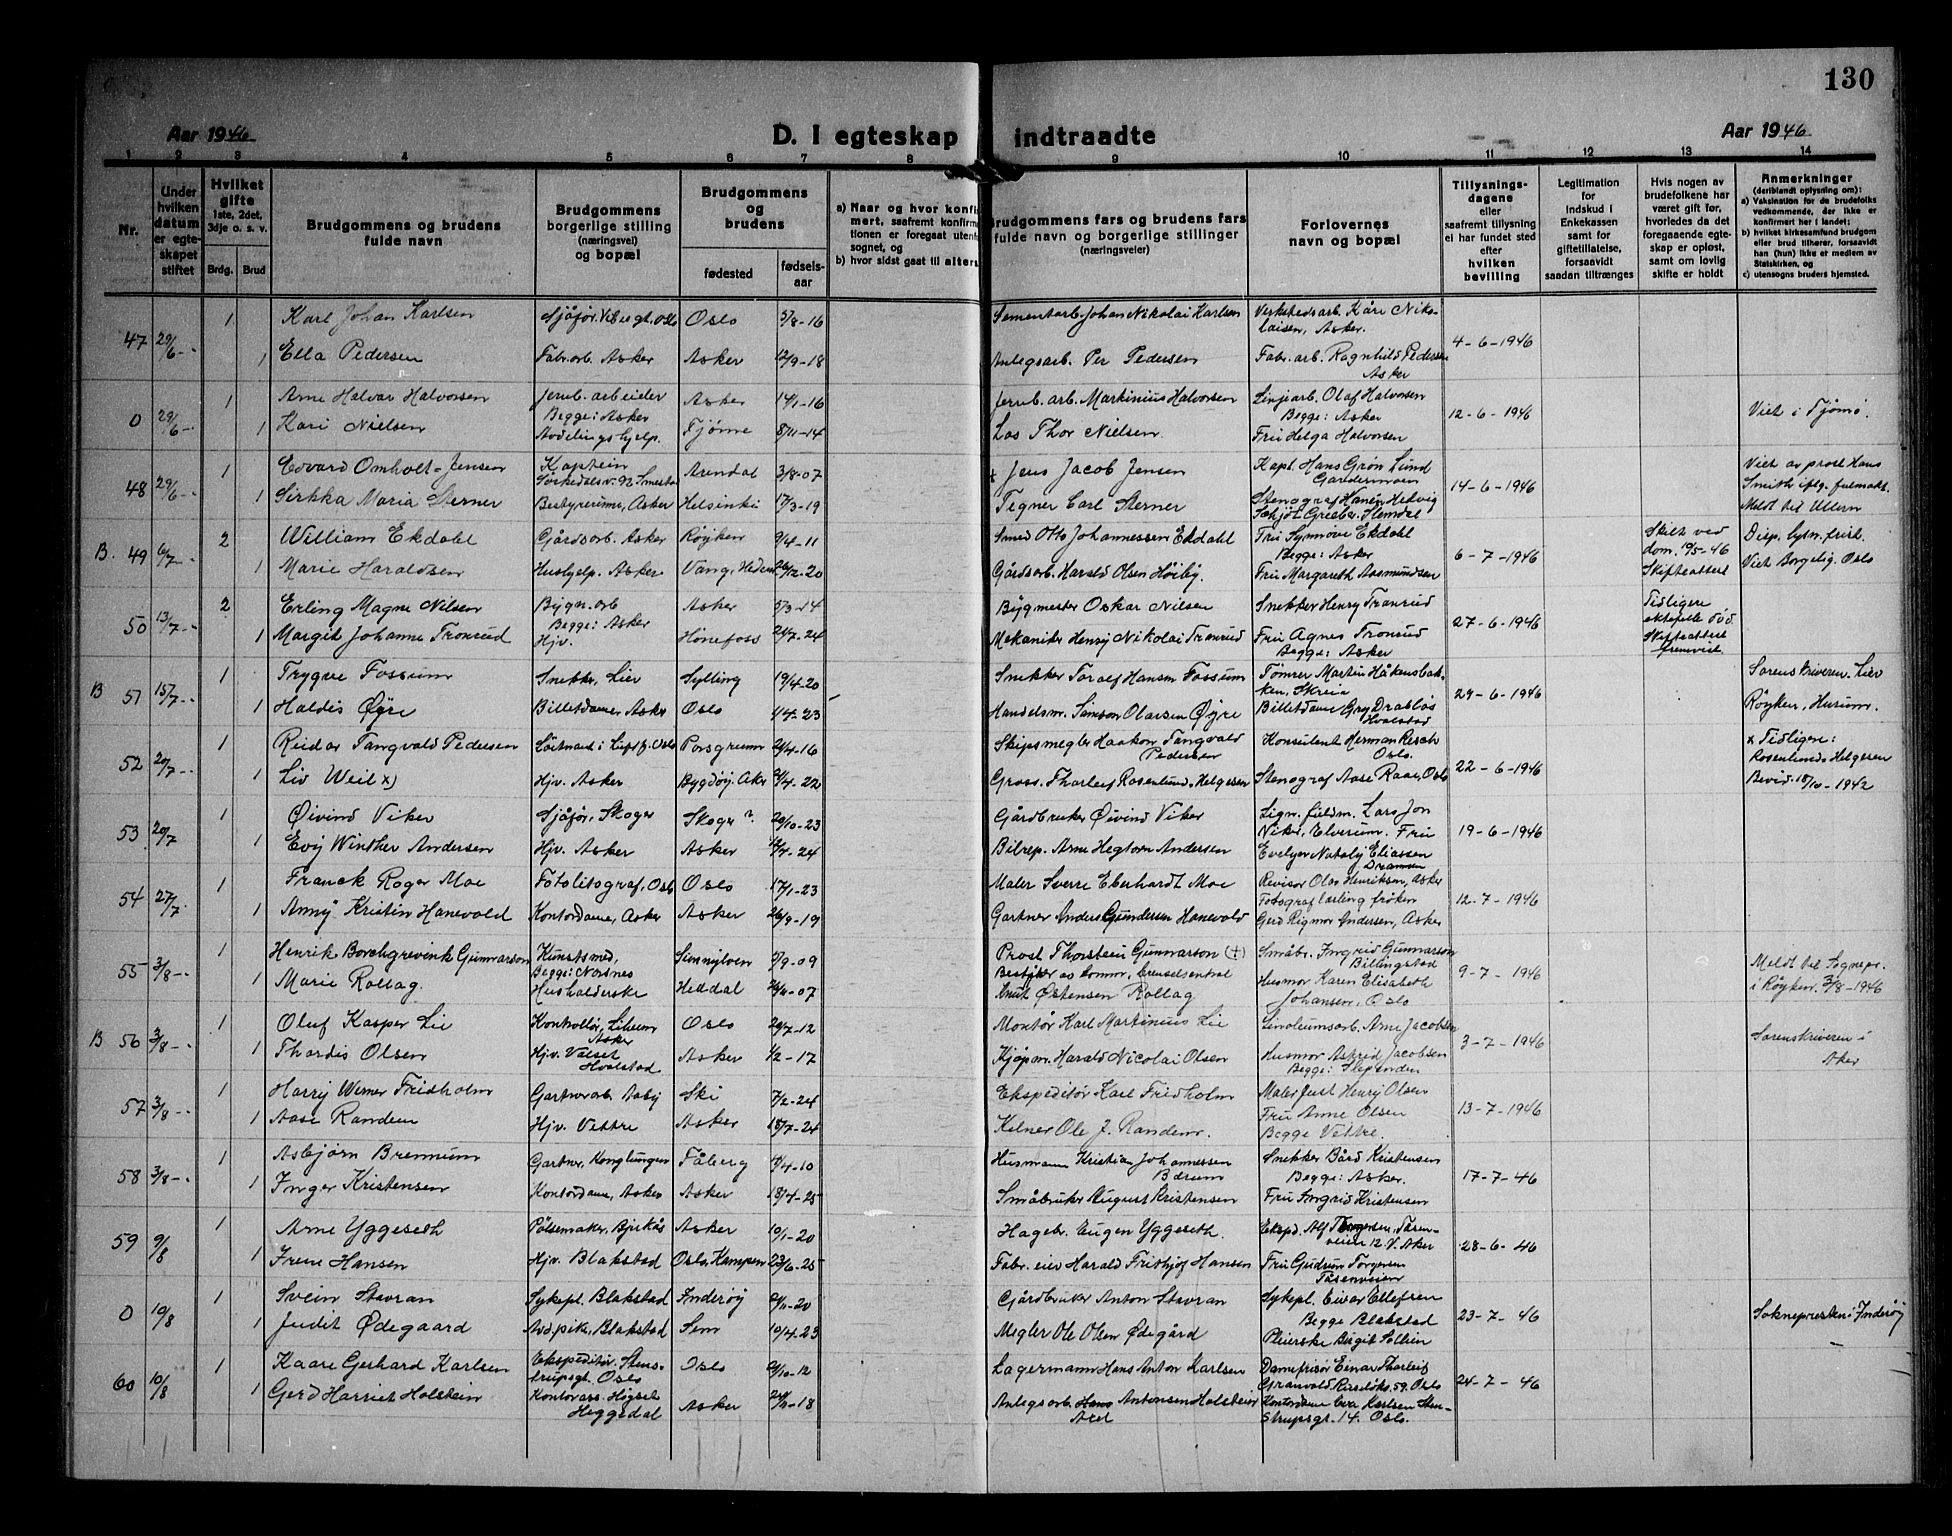 130
Aar 1946
D. I egteskap indtraadte
Aar 1946
1 2 3 4 5 6 7 8 9 10 11 12 13 14
Nr.
Under hvilken datum er egteskapet stiftet
Hvilket gifte 1ste, 2det, 3dje o. s. v.
Brdg. Brud
Brudgommens og brudens fulde navn
Brudgommens borgerlige stilling (næringsvei) og bopæl
Brudgommens og brudens
fødested fødselsaar
a) Naar og hvor konfi
mert, saafremt konfirma
tionen er foregaat utenfo
sognet, og
b) hvor sidst gaat til alters
Brudgommens fars og brudens fars fulde navn og borgerlige stillinger (næringsveier)
Forlovernes navn og bopæl
Tillysningsdagene eller saafremt tillysning ei har fundet sted efter hvilken bevilling
Legitimation for Indskud i Enkekassen samt for giftetillatelse, forsaavidt saadan tiltrænges
Hvis nogen av brudefolkene har været gift før, hvorledes da det foregaaende egteskap er opløst, samt om lovlig skifte er holdt
Anmerkninger (deriblandt oplysning om):
a) Vaksination for de brudefolks vedkommende, der ikke er konfirmert her i landet;
b) hvilket kirkesamfund brudgom eller brud tilhører, forsaavidt han (hun) ikke er medlem av Statskirken, og
c) utensogns bruders hjemsted.
47 29/6 - 1 Karl Johan Karlsen Sjåfør, Oslo Oslo 5/8-16 Sementarb. Johan Nikolai Karlsen Verkstedsarb. Kåre Nikolaisen, Asker. 4-6-1946
1 Ella Pedersen Fabr.arb. Asker Asker 12/9-18 Anlegsarb. Per Pedersen Fabr. arb. Ragnhild Pedersen Asker
0 29/6 - 1 Arne Halvar Halvorsen Jernb. arbeider Asker 14/1-16 Jernb. arb. Markinius Halvorsen Linjearb. Olaf Halvorsen 12-6-1946 Viet i Tjömö.
Begge: Asker Begge: Asker
1 Kari Nielsen Avdelingshjelp. Tjöme 8/11-14 Los Thor Nielsen. Fru Helga Halvorsen
48 29/6 - 1 Edvard Omholt-Jensen Kaptein Arendal 3/8-07 + Jens Jacob Jensen Kapt. Hans Grøn Lund Gardermoen 14-6-1946 Viet av prost Hans Smith iflg. fulmakt. Meldt til Ullern
1 Sirkka Maria Sterner Bestyrerinne, Asker Helsinki 17/3-19 Tegner Carl Sterner Stenograf Hedvig Schjöt Greeber. Slemdal
B. 49 6/7 - 2 William Ekdahl Gårdsarb. Asker Røyken 9/4-11 Smed Otto Johannessen Ekdahl Fru Synnöve Ekdahl 6-7-1946 Skilt ved dom. 19/5-46 Skifteattest Disp. lysn. frist. Viet Borgelig. Oslo
Begge: Asker
1 Marie Haraldsen Hushjelp. Asker Vang, Hedem 26/12-20 Gårdsarb. Harald Olsen Höiby. Fru Margareth Aasmundsen
50 13/7 - 2 Erling Magne Nilsen Bygn.arb Asker 5/3-14 Bygmester Oskar Nilsen Snekker Henry Tronrud 27-6-1946 Tidligere ektefelle död. Skifteattest
Begge: Asker
1 Margit Johanne Tronrud Hjv. Hönefoss 21/7-24 Mekaniker Henry Nikolai Tronrud Fru Agnes Tronrud Begge: Asker
B 51 15/7 - 1 Trygve Fossum Snekker, Lier Sylling 19/4-20 Snekker Toralf Hansen Fossum Tømrer Martin Håkensbakken, Skreia 29-6-1946 Sorenskriveren. Lier Røyken, Hurum.
1 Haldis Øyre Billetdame, Asker Oslo 4/4-23 Handelsm. Samson Olarsen Øyre Billetdame Gry Drabløs Hvalstad
52 20/7 - 1 Reidar Tangvald Pedersen Löitnant i Luftf. Oslo Porsgrunn 21/4-16 Skipsmegler Haakon Tangvald Pedersen Konsulent Herman Resch Oslo. 22-6-1946 x Tidligere: Rosenlund Helgesen Bevid. 15/10-1942
1 Liv Weil x) Hjv. Asker Bygdöy, Aker 2/4-22 Gross. Tharleif Rosenlund Helgesen Stenograf Aase Raae, Oslo
53 20/7 1 Øivind Viker Sjåför, Skoger Skoger ? 20/10-23 Gårdbruker Øivind Viker Lign. fuldm. Lars Jon Viker, Elverum. Fru 19-6-1946
1 Evy Winther Andersen Hjv. Asker Asker 24 Bilrep. Arne Hegtorn Andersen Evelyn Nataly Eliassen Drammen
54 27/7 - 1 Franck Roger Moe Fotolitograf, Oslo Oslo 17/1-23 Maler Sverre Eberhardt Moe Revisor Olav Henriksen, Asker 12-7-1946
1 Anny Kristin Hanevold Kontordame, Asker Asker 26/9-19 Gartner Anders Gundersen Hanevold Fotograflærling frøken Gerd Rigmor Andersen, Asker
55 3/8 - 1 Henrik Borchgrevink Gunnarson Kunstsmed, Sunnylven 5/9-09 Prost Thorstein Gunnarsson (+) Småbr. Ingrid Gunnarson Billingstad 9-7-1946 Meldt til Sognepr. i Røyken. 3/8-1946
Begge: Nesnes
1 Marie Rollag. Husholderske Heddal 07 Bestyrer av kommr. Knut Østensen Rollag Husmor Karen Elisabeth Johansen, Oslo
B 56 3/8 - 1 Oluf Kasper Lie Kontrollör, Asker Oslo 20/7-12 Montör Karl Martinius Lie Linoleumsarb. Arne Jacobsen 3-7-1946 Sorenskriveren i Aker
1 Thordis Olsen Hjv. Valset Hvalstad Asker 1/2-17 Kjöpm. Harald Nicolai Olsen Husmor Astrid Jacobsen Begge: Slependen
57 3/8 - 1 Harry Werner Fridholm Gartnerarb. Aaby Ski 7/2-24 Ekspeditör Karl Fridholm Malerfast Henry Olsen 13-7-1946
1 Aase Randem Hjv. Vettre Asker 18/7-24 Kelner Ole J. Randem. Fru Anne Olsen Begge Vettre.
58 3/8 - 1 Asbjörn Brennum Gartner, Konglungen Fåberg 4-10 Husmann Kristian Johannessen Bærum Snekker Bård Kristensen 17-7-46
Begge: Asker.
1 Inger Kristensen Kontordame, Asker Asker 18/4-25 Småbruker August Kristensen Fru Ingrid Kristensen
59 9/8 1 Arne Yggeseth Pølsemaker, Bjerkås Asker 10/1-20 Hagebr. Eugen Yggeseth. Ekspd. Alf Torgersen, Tåsenveien 12. V. Aker 28-6-46
1 Irene Hansen Hjv. Blakstad Oslo, Kampen 23/6-25 Fabr. eier Harald Frithjof Hansen Fru Gudrun Torgersen Tåsenveien
0 10/8 1 Svein Stavran Sykepl. Blakstad Inderöy 20 Gårdbruker Anton Stavran Sykepl. Eivar Ellefsen 23-7-46 Soknepresten i Inderöy
Begge Blakstad
1 Judit Ødegaard Avdpike, Blakstad Sem 10/4-23 Megler Ole Olsen Ødegård Pleierske Birgit Sollien
60 10/8 1 Kaare Gerhard Karlsen Ekspeditör. Stenstrupsgt. Oslo Oslo 21/10-12 Lagermann Hans Anton Karlsen Damefrisör Einar Tharleif Granvold 59. Oslo 24-7-46
1 Gerd Harriet Holstein Kontorass. Högset Heggedal Asker 18 Anlegsarb. Hans Axel Antonsen Holstein Kontordame Eva Karlsen Stenstrupsgt. 14. Oslo.